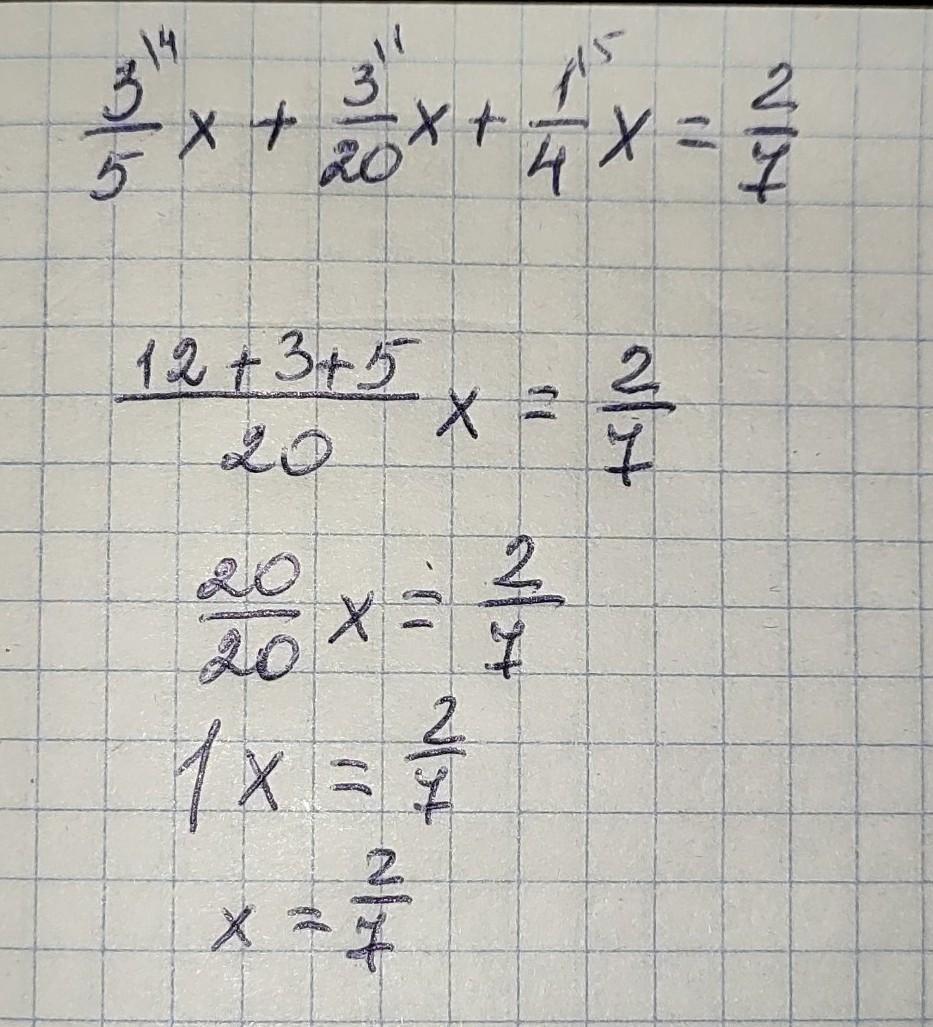 3\4/5 x + 3\1/20 x + 1\5/4 x = 2/7
12+3+5/20 x = 2/7
20/20 x = 2/7
1x = 2/7
x = 2/7